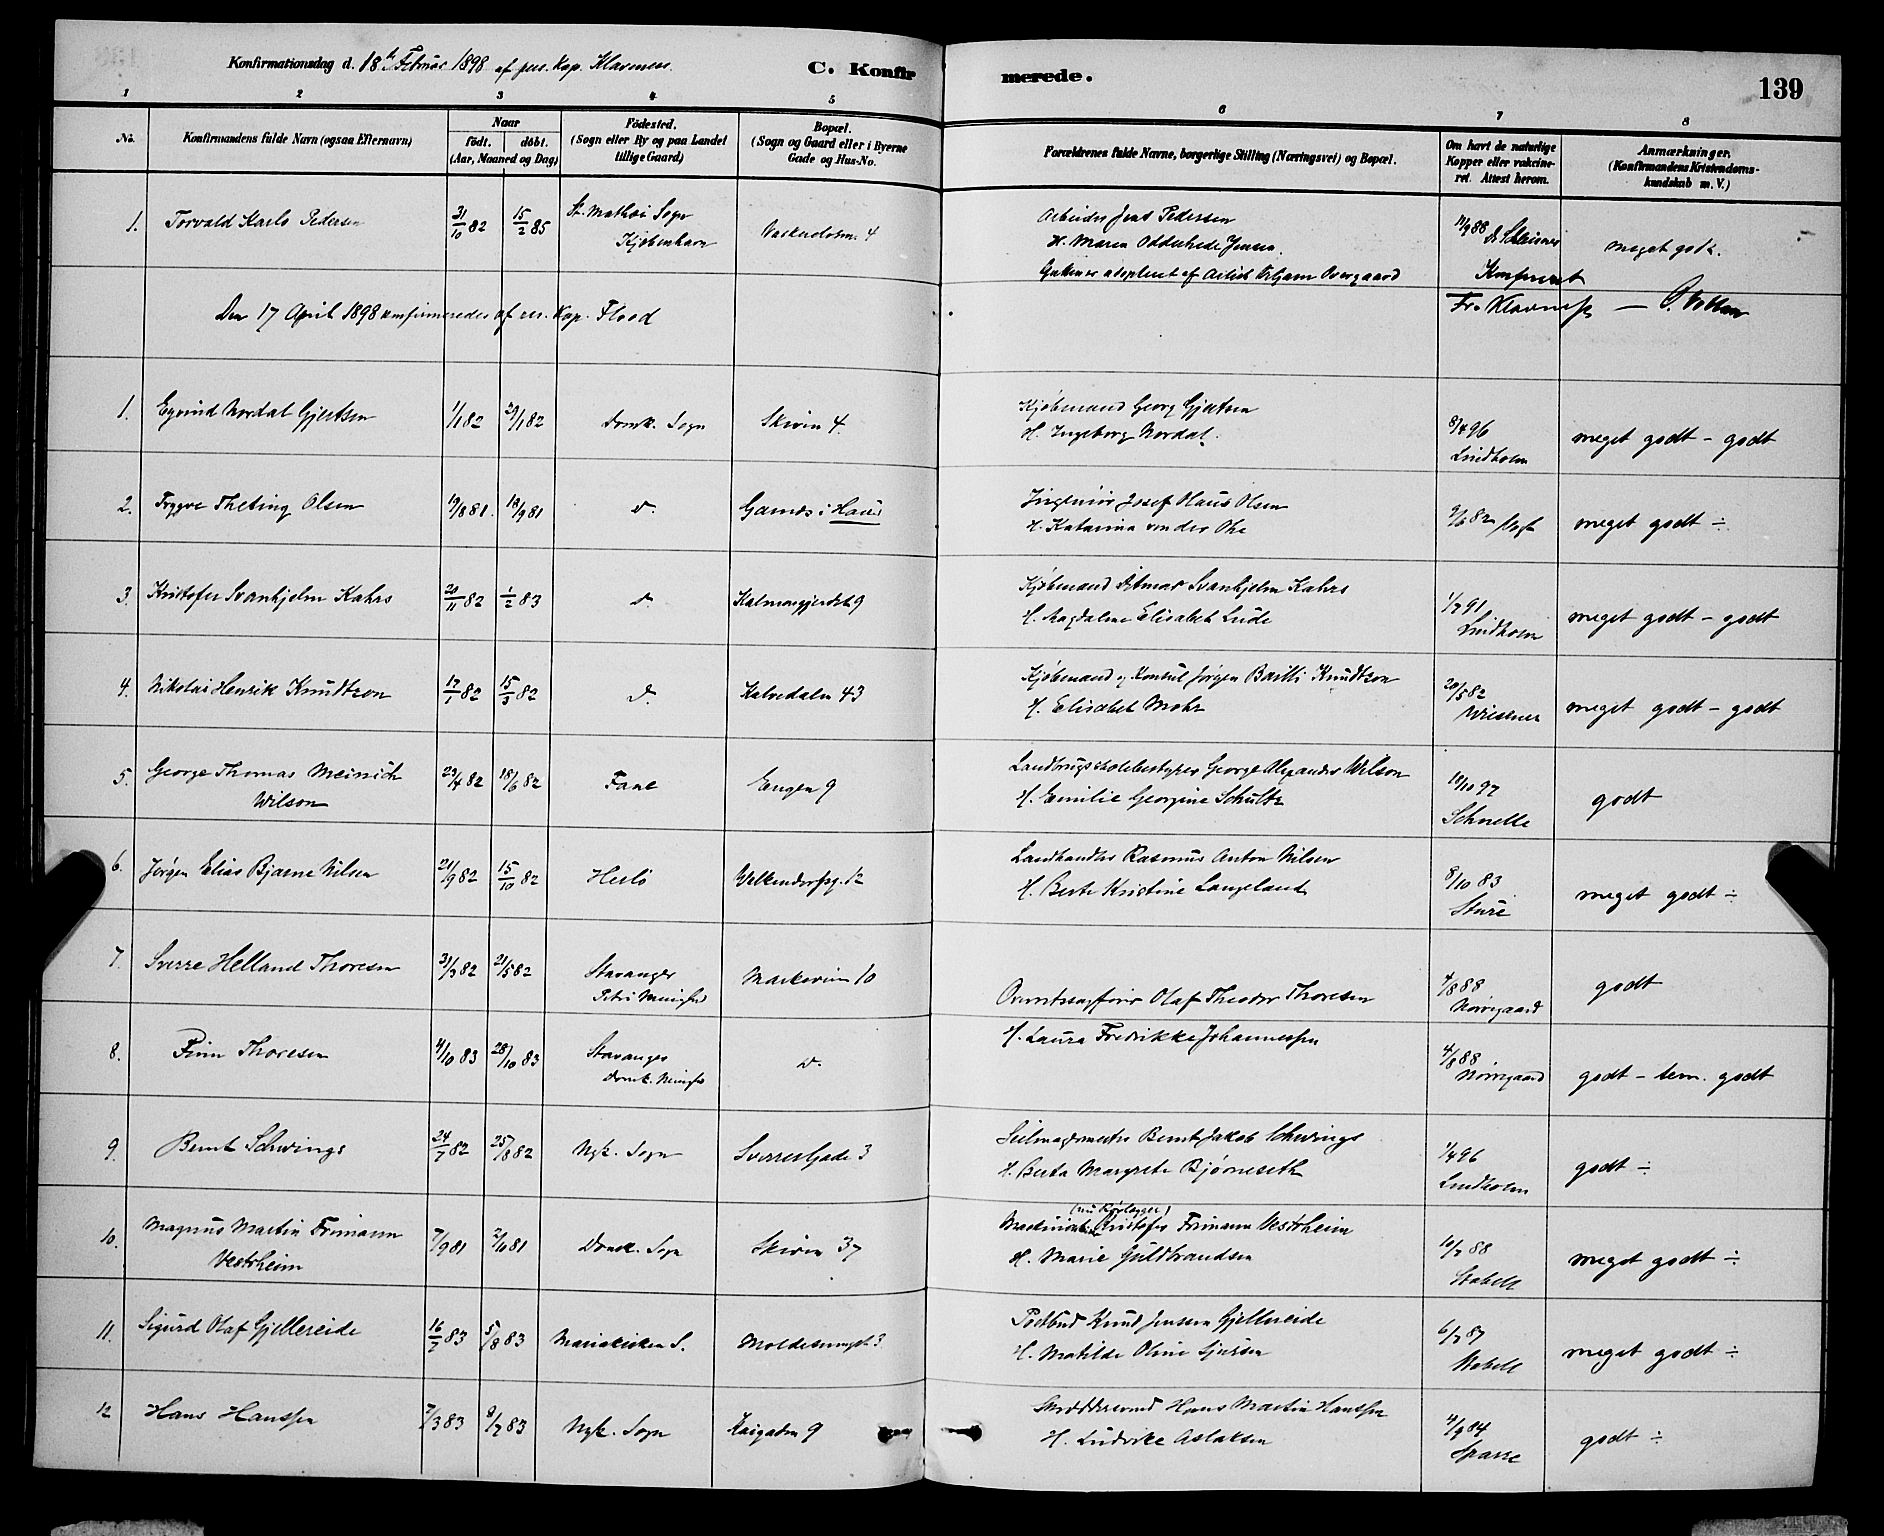 Konfirmationsdag d. 18de Februar 1898 af res. Kap. Klavness.
C. Konfirmerede.
139
1 2 3 4 5 6 7 8
No.
Konfirmandens fulde Navn (ogsaa Efternavn)
Naar
født. døbt.
(Aar, Maaned og Dag)
Fødested.
(Sogn eller By og paa Landet
tillige Gaard)
Bopæl.
(Sogn og Gaard eller i Byerne
Gade og Hus-No.
Forældrenes fulde Navne, borgerlige Stilling (Næringsvei) og Bopæl.
Om havt de naturlige
Kopper eller vakcine-
ret. Attest herom.
Anmærkninger.
(Konfirmandens Kristendoms-
kundskab m. V.)
1. Torvald Karlo Pedersen 31/10 82 15/2 85 St. Mathæi Sogn
Kjøbenhavn
4
Arbeider Jens Pedersen
H. Maren Jensen
Gutten er adopteret af Overgaard
/9 88
meget godt.
Konfirmeret
Den 17 April 1898 konfirmeredes af res. Kap. Flood
Fr. Klavness
1. Eyvind Nordal Gjertsen 1/1 82 29/1 82 Domk. Sogn Skiven 4. Kjøbmand Georg Gjertsen
H. Ingeborg Nordal.
8/4 96
Lindholm
meget godt - godt
2. Trygve Theting Olsen 19/8 81. 18/9 81 do. Garnes i Haus Ingeniør Josef Olaus Olsen
H. Katarina von der Ohe
9/6 82
meget godt ÷
3. Kristofer Svanhjelm Kahrs 20/11 82 1/2 83 do. Kalmargjerdet 9 Kjøbmand Ditmar Svanhjelm Kahrs
H. Magdalene Elisabet Lude
1/7 91
Lindholm
meget godt - godt
4. Nikolai Henrik Knudtzon 17/1 82 15/3 82 do. Kalvedalen 43 Kjøbmand og Konsul Jørgen Knudtzon
H. Elisabet Mohr
20/5 82
Wiesener
meget godt - godt
5. George Thomas Meinich
Wilson
29/4 82 18/6 82 Fane Engen 9 Landbrugsskolebestyrer George Alexander Wilson
H. Emilie Georgine Schultz
18/10 97
Schnelle
godt
6. Jørgen Elias Bjarne Nilsen 21/9 82 15/10 82 Herlø Welkendorfsg. 12 Landhandler Rasmus Anton Nilsen
H. Berte Kristine Langeland
8/10 83
Sture
meget godt ÷
7. Sverre Helland Thoresen 31/3 82 21/5 82 Stavanger
Petri Menighed
Markeveien 10
Overretssagfører Olaf Theodor Thoresen
4/8 88
Nørregaard
godt
8. Finn Thoresen 4/10 83 28/10 83 Stavanger
Domk. Menighed
do.
H. Laura Fredrikke Johannessen
4/8 88
Nørregaard
godt - tem. godt
9. Bernt Schwings 24/7 82 25/8 82 Nyk. Sogn Sverresgade 3 Seilmagermester Bernt Jakob Schwings
H. Berta Margrete Bjørneseth
1/4 96
Lindholm
godt ÷
10. Magnus Martin Frimann
Vestrheim
7/9 81 2/10 81 Domk. Sogn Skiven 37
(nu Rørlægger)
Maskinist Kristofer Frimann Vestrheim
H. Marie Guldbrandsen
10/7 88
Stabell
meget godt ÷
11. Sigurd Olaf Gjellereide 16/7 83 5/8 83 Mariakirken S. 3 Postbud Knud Jensen Gjellereide
H. Matilde Oline Sjursen
6/7 87
Stabell
meget godt ÷
12 Hans Hanssen 7/3 83 8/7 83 Nyk. Sogn Kaigaden 9 Skræddersvend Hans Martin Hanssen
H. Ludvike Aslaksen
4/9 84
Sparre
godt ÷